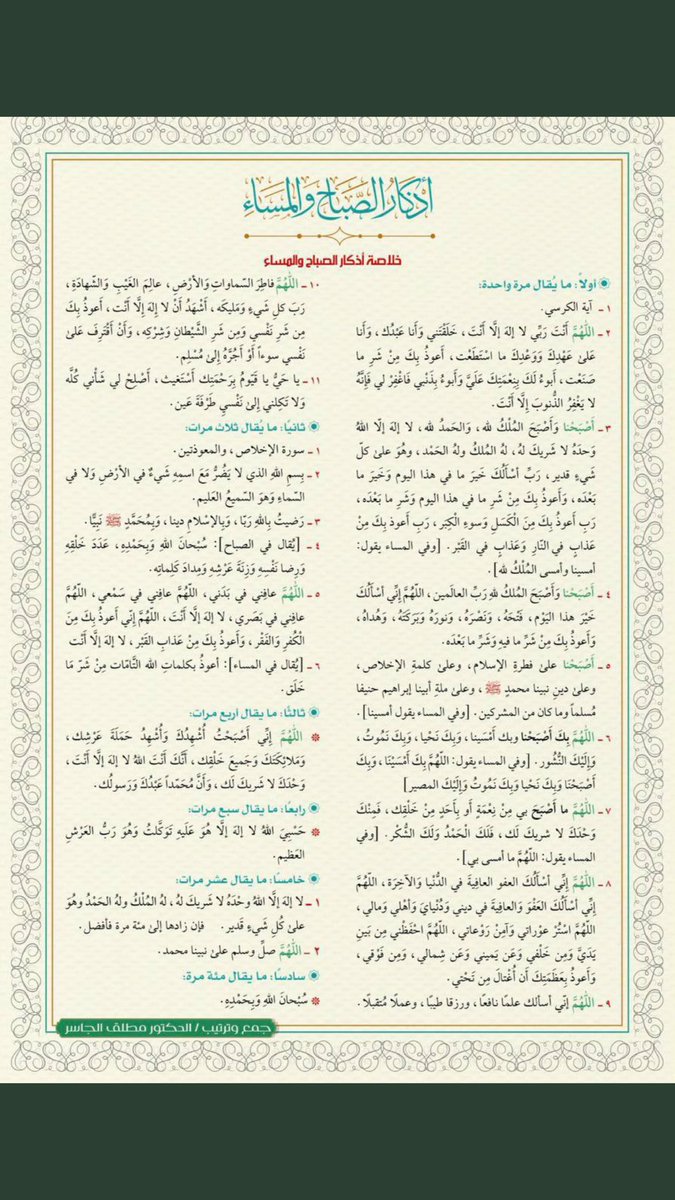 أَذْكَارُ الصَّبَاحِ وَالْمَسَاءِ
خلاصة أذكار الصباح والمساء
أولاً: ما يُقال مرة واحدة:
١ ـ آية الكرسي.
٢ ـ اللَّهُمَّ أَنْتَ رَبِّي لا إلهَ إلَّا أَنْتَ، خَلَقْتَني وَأنا عَبْدُك، وَأنا
عَلىٰ عَهْدِكَ وَوَعْدِكَ ما اسْتَطَعْت، أَعوذُ بِكَ مِنْ شَرِ ما
صَنَعْت، أَبوءُ لَكَ بِنِعْمَتِكَ عَلَيَّ وَأَبوءُ بِذَنْبي فَاغْفِرْ لي فَإِنَّهُ
لا يَغْفِرُ الذُّنوبَ إِلَّا أَنْتَ.
٣ ـ أَصْبَحْنا وَأَصْبَحَ المُلْكُ لله، وَالحَمدُ لله، لا إلهَ إلّا اللهُ
وَحدَهُ لا شَريكَ له، له المُلكُ ولهُ الحَمْد، وهُوَ على كلّ
شَيءٍ قدير، رَبِّ أسْأَلُكَ خَيرَ ما في هذا اليوم وَخَيرَ ما
بَعْدَه، وَأَعوذُ بِكَ مِنْ شَرِ ما في هذا اليوم وَشَرِ ما بَعْدَه،
رَبِ أَعوذُ بِكَ مِنَ الْكَسَلِ وَسوءِ الْكِبَر، رَبِ أَعوذُ بِكَ مِنْ
عَذابٍ في النّارِ وَعَذابٍ في القَبْر. [وفي المساء يقول:
أمسينا وأمسى المُلْكُ لله].
٤ ـ أَصْبَحْنا وَأَصْبَحَ المُلكُ للهِ رَبِّ العالَمين، اللَّهُمَّ إِنِّي أَسْأَلُكَ
خَيْرَ هذا اليَوْم، فَتْحَهُ، وَنَصْرَهُ، وَنورَهُ وَبَرَكَتَهُ، وَهُداهُ،
وَأَعوذُ بِكَ مِنْ شَرِّ ما فيهِ وَشَرِّ ما بَعْدَه.
٥ ـ أَصْبَحْنا علىٰ فطرةِ الإسلام، وعلىٰ كلمةِ الإخلاص،
وعلىٰ دينِ نبينا محمدٍ ﷺ، وعلىٰ ملةِ أبينا إبراهيم حنيفا
مُسلماً وما كان من المشركين. [وفي المساء يقول أمسينا].
٦ ـ اللَّهُمَّ بِكَ أَصْبَحْنا وبك أَمْسَينا، وَبِكَ نَحْيا، وَبِكَ نَمُوتُ،
وَإِلَيْكَ النُّشُور. [وفي المساء يقول: اللَّهُمَّ بِكَ أَمْسَيْنَا، وَبِكَ
أَصْبَحْنَا وَبِكَ نَحْيا وَبِكَ نَمُوتُ وَإِلَيْكَ المصير]
٧ ـ اللَّهُمَّ ما أَصْبَحَ بي مِنْ نِعْمَةٍ أو بِأَحَدٍ مِنْ خَلْقِك، فَمِنْكَ
وَحْدَكَ لا شريكَ لَك، فَلَكَ الْحَمْدُ وَلَكَ الشُّكْر. [وفي
المساء يقول: اللَّهُمَّ ما أمسى بي].
٨ ـ اللَّهُمَّ إِنِّي أَسأَلُكَ العفو العافِيةَ في الدُّنْيا وَالآخِرَة، اللَّهُمَّ
إِنِّي أَسألُكَ العَفْوَ وَالعافِيةَ في ديني وَدُنْيايَ وَأهْلي وَمالي،
اللَّهُمَّ اسْتُرْ عوْراتي وَآمِنْ رَوْعاتي، اللَّهُمَّ احْفَظْني مِن بَينِ
يَدَيَّ وَمِن خَلْفي وَعَن يَميني وَعَن شِمالي، وَمِن فَوْقي،
وَأَعوذُ بِعَظَمَتِكَ أَن أُغْتالَ مِن تَحْتي.
٩ ـ اللَّهُمَّ إِنّي أسألك علمًا نافعًا، ورزقا طيبًا، وعملًا مُتقبلًا.
١٠ ـ اللَّهُمَّ فاطِرَ السَّماواتِ وَالأرْضِ، عالِمَ الغَيْبِ وَالشّهادَةِ،
رَبَّ كلِ شَيءٍ وَمَليكَه، أَشْهَدُ أَنْ لا إِلهَ إِلَّا أَنْت، أَعوذُ بِكَ
مِن شَرِ نَفْسي وَمِن شَرِ الشَّيْطانِ وَشِرْكِه، وَأَنْ أَقْتَرِفَ عَلىٰ
نَفْسي سوءاً أَوْ أَجُرَّهُ إِلىٰ مُسْلِم.
١١ ـ يا حَيُّ يا قَيّومُ بِرَحْمَتِك أَسْتَغيث، أَصْلِحْ لي شَأني كُلَّه
وَلا تَكِلني إِلىٰ نَفْسي طَرْفَةَ عَين.
ثانيًا: ما يُقال ثلاث مرات:
١ ـ سورة الإخلاص، والمعوذتين.
٢ ـ بِسمِ اللهِ الذي لا يَضُرُّ مَعَ اسمِهِ شَيءٌ في الأرْضِ وَلا في
السّماءِ وَهوَ السّميعُ العَليم.
٣ ـ رَضيتُ بِاللهِ رَبًا، وَبِالإسْلامِ دينا، وَبِمُحَمَّدٍ ﷺ نَبِيًّا.
٤ ـ [يُقال في الصباح]: سُبْحانَ اللهِ وَبِحَمْدِهِ، عَدَدَ خَلْقِهِ
وَرِضا نَفْسِهِ وَزِنَةَ عَرْشِهِ وَمِدادَ كَلِماتِه.
٥ ـ اللَّهُمَّ عافِني في بَدَني، اللَّهُمَّ عافِني في سَمْعي، اللَّهُمَّ
عافِني في بَصَري، لا إلهَ إلَّا أَنْتَ، اللَّهُمَّ إِنّي أَعوذُ بِكَ مِنَ
الْكُفْرِ وَالفَقْر، وَأَعوذُ بِكَ مِنْ عَذابِ القَبْرِ، لا إلهَ إلَّا أَنْت
٦ ـ [يُقال في المساء]: أعوذُ بكلماتِ الله التَّامّات مِنْ شَرّ مَا
خَلَق.
ثالثًا: ما يقال أربع مرات:
اللَّهُمَّ إِنِّي أَصْبَحْتُ أُشْهِدُكَ وَأُشْهِدُ حَمَلَةَ عَرْشِك،
وَمَلائِكَتَكَ وَجَميعَ خَلْقِك، أَنَّكَ أَنْتَ اللهُ لا إلهَ إلَّا أَنْتَ،
وَحْدَكَ لا شَريكَ لَك، وَأَنَّ مُحَمّداً عَبْدُكَ وَرَسولُك.
رابعًا: ما يقال سبع مرات:
حَسْبِيَ اللهُ لا إلهَ إلَّا هُوَ عَلَيهِ تَوَكَّلتُ وَهُوَ رَبُّ العَرْشِ
العَظيم.
خامسًا: ما يقال عشر مرات:
١ ـ لا إلهَ إلَّا اللهُ وحْدَهُ لا شَريكَ لهُ، لهُ المُلْكُ ولهُ الحَمْدُ وهُوَ
علىٰ كُلِ شَيءٍ قَدير. فإن زادها إلى مئة مرة فأفضل.
٢ ـ اللَّهُمَّ صلِّ وسلم علىٰ نبينا محمد.
سادسًا: ما يقال مئة مرة:
سُبْحانَ اللهِ وَبِحَمْدِهِ.
جمع وترتيب / الدكتور مطلق الجاسر